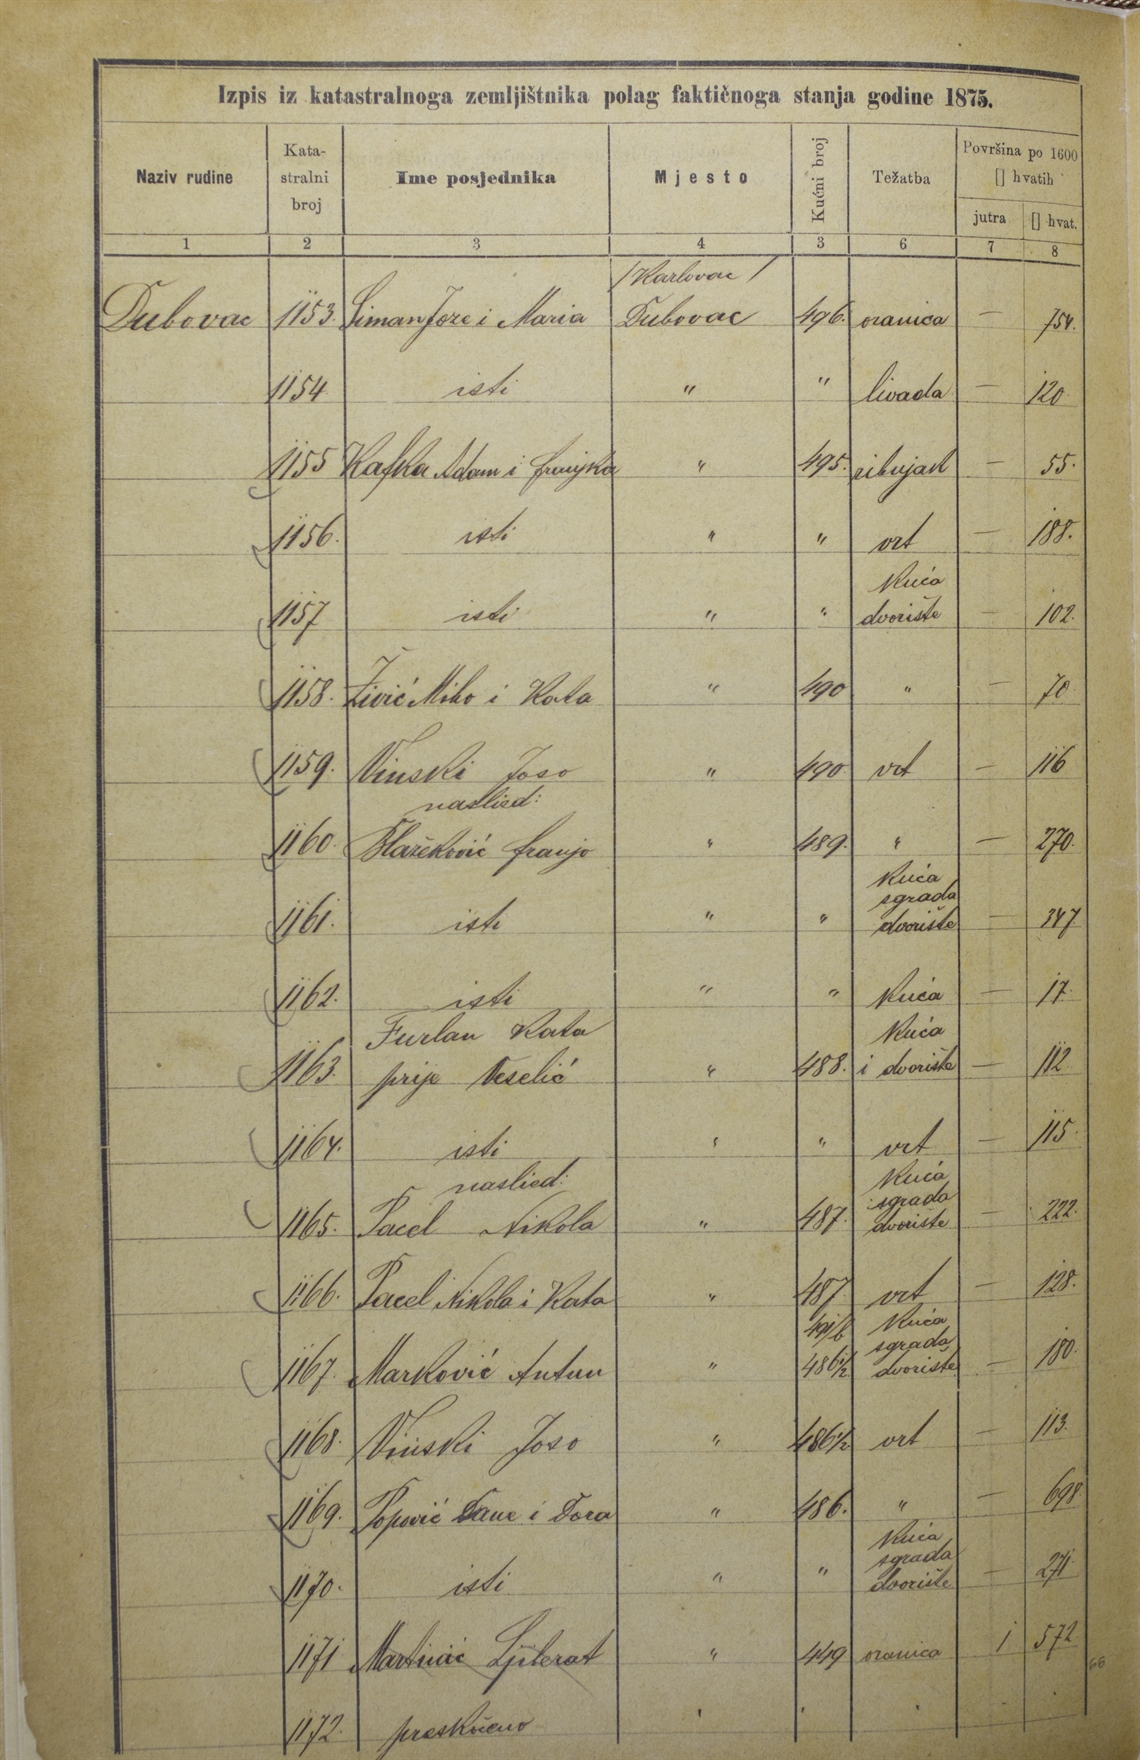 Izpis iz katastralnoga zemljištnika polag faktičnoga stanja godine 1875.
Naziv rudine Kata- Ime posjednika Mjesto Kućni broj Težatba Površina po 1600
stralni [] hvatih
broj jutra [] hvat.
1 2 3 4 3 6 7 8
/Karlovac/
Dubovac 1153. Siman Joze i Maria Dubovac 496. oranica — 754.
1154 isti " " livada — 120
1155 Kafka Adam i franjka " 495. ribnjak — 55.
1156. isti " " vrt — 188.
kuća
1157 isti " " dvorište — 102.
1158. Živić Miho i Kata " 490 " — 70
1159. Vinski Joso " 490 vrt — 116
naslied:
1160. Blažeković franjo " 489. " — 270.
kuća
sgrada
1161. isti " " dvorište — 347
1162. isti " " kuća — 17.
Furlan Kata kuća
1163. prije Veselić " 488. i dvorište — 112
1164. isti " " vrt — 115.
naslied: kuća
sgrada
1165. Pacel Nikola " 487. dvorište — 222.
1166. Pacel Nikola i Kata " 487 vrt — 128.
kuća
sgrada
1167. Marković Antun " 486½ dvorište — 180.
1168. Vinski Joso " 486½ vrt — 113.
1169. Popović Dane i Dora " 486. " — 698
kuća
sgrada
1170. isti " " dvorište — 271
1171 Martinić " 449 oranica 1 572
1172. preskočeno ' ' ' '
66